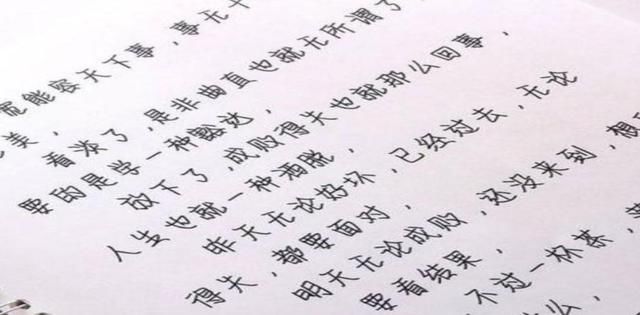 能容天下事，事无十
美，
看淡了，是非曲直也就无所谓了
要的是学一种豁达，
放下了，成败得失也就那么回事，
人生也就一种洒脱，
昨天无论好坏，已经过去，无论
得失，都要面对，
明天无论成败，还没来到，想
要看结果，
不过一杯茶，
么，